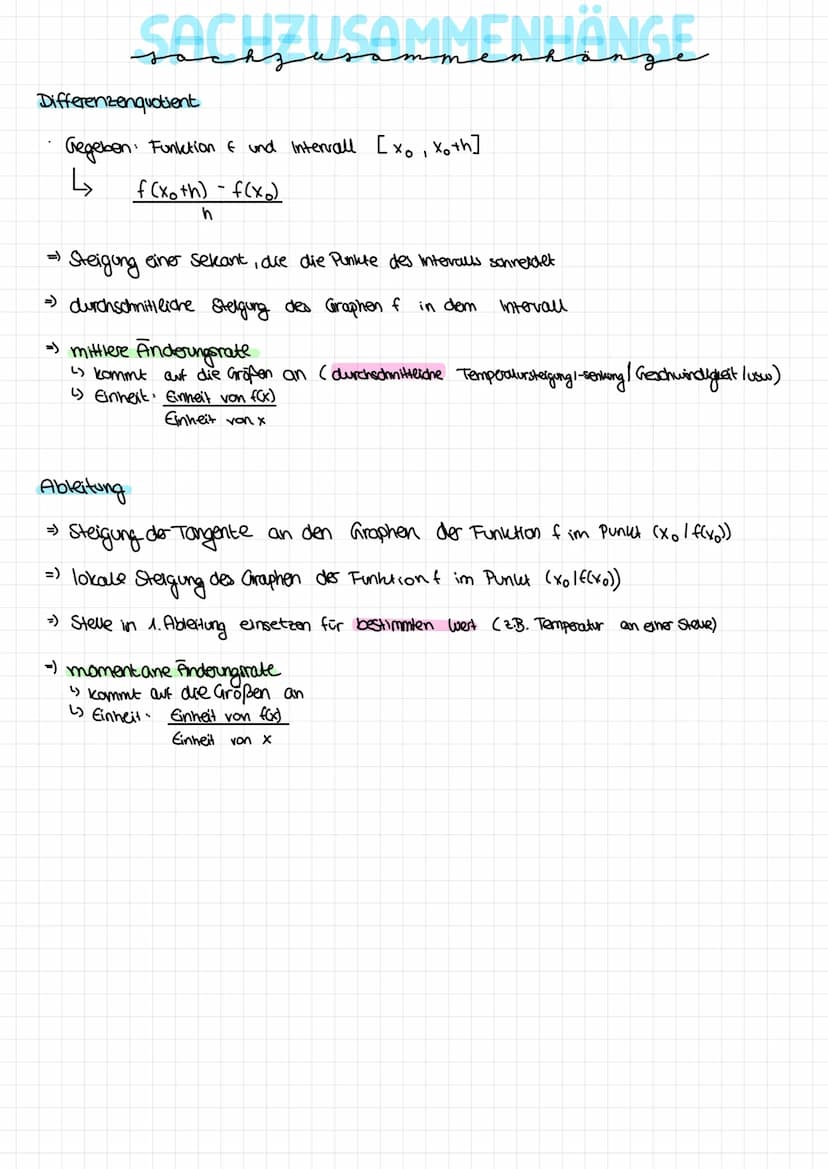 SACHZUSAMMENHÄNGE
sachzusammenhänge
Differenzenquotient
· Gegeben: Funktion f und Intervall [x₀, x₀+h]
↳ f(x₀+h) - f(x₀)
h
⇒ Steigung einer Sekant, die die Punkte des Intervalls schneidet
⇒ durchschnittliche Steigung des Graphen f in dem Intervall
⇒ mittlere Änderungsrate
↳ kommt auf die Größen an (durchschnittliche Temperatursteigung/-senkung/Geschwindigkeit/usw)
↳ Einheit: Einheit von f(x)
Einheit von x
Ableitung
⇒ Steigung der Tangente an den Graphen der Funktion f im Punkt (x₀/f(x₀))
⇒ lokale Steigung des Graphen der Funktion f im Punkt (x₀/f(x₀))
⇒ Stelle in 1. Ableitung einsetzen für bestimmten Wert (z.B. Temperatur an einer Stelle)
⇒ momentane Änderungsrate
↳ kommt auf die Größen an
↳ Einheit: Einheit von f(x)
Einheit von x